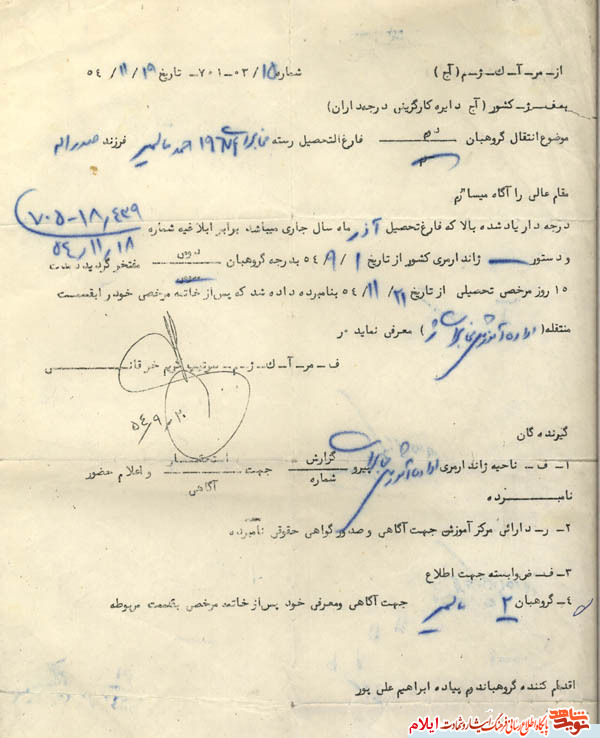 از ـ مر ـ آ ـ ك ـ ژ ـ م ( آج ) شماره ۱۵/ ۰۳ - ۷۰۱ - تاریخ ۱۹/ ۱۱/ ۵۴
به ف ـ ژ ـ كشور ( آج دایره كارگزینی درجه داران )
موضوع انتقال گروهبان دوم فارغ التحصیل رسته مخابرات احمد فرزند صدراله
مقام عالی را آگاه میسازم
درجه دار یاد شده بالا كه فارغ تحصیل آذر ماه سال جاری میباشد برابر ابلاغیه شماره ۷۰۵-۱۸,۴۳۹
۵۴,۱۱,۱۸
و دستور ژاندارمری كشور از تاریخ ۱ /۹ /۵۴ بدرجه گروهبان دومی مفتخر گردید و مدت
۱۵ روز مرخصی تحصیلی از تاریخ ۲۱/ ۱۱/ ۵۴ بنامبرده داده شد كه پس از خاتمه مرخصی خود را بقسمت
منتقله ( اداره آموزش مخابرات ژ ) معرفی نماید
ف ـ مر ـ آ ـ ك ـ ژ ـ م ـ سرتیپ
۵۴/۹/۲۰
گیرنده گان
۱ـ ف ـ ناحیه ژاندارمری اداره آموزش مخابرات پیرو گزارش شماره جهت استحضار آگاهی و اعلام حضور
نامبرده
۲ـ ر ـ دارائی مركز آموزش جهت آگاهی و صدور گواهی حقوقی نامبرده
۳ـ ف ـ ض وابسته جهت اطلاع
۴ـ گروهبان ۲ جهت آگاهی و معرفی خود پس از خاتمه مرخصی بقسمت مربوطه
اقدام كننده گروهباندوم پیاده ابراهیم علی پور
نوید شاهد پایگاه اطلاع رسانی فرهنگ ایثار و شهادت ایلام